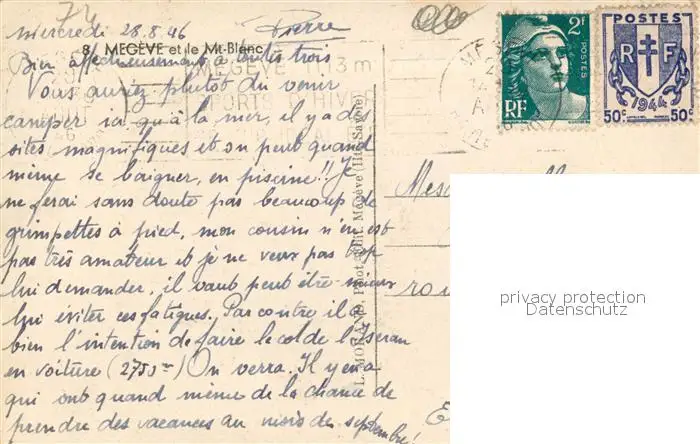 74
mercredi 28.8.46 Pierre
8. MEGÈVE et le Mt-Blanc
Bien affectueusement à toutes trois
Vous auriez plutôt du venir
camper ici qu'à la mer, il y a des
sites magnifiques et on peut quand
même se baigner, en piscine!! Je
ne ferai sans doute pas beaucoup de
grimpettes à pied, mon cousin n'en est
pas très amateur et je ne veux pas trop
lui demander, il vaut peut être mieux
lui éviter ces fatigues. Par contre il a
bien l'intention de faire le col de l'Iseran
en voiture (2750 m) On verra. Il y en a
qui ont quand même de la chance de
prendre des vacances au mois de septembre!
MEGÈVE 1113 m
SPORTS D'HIVER
L. MORAND, Phot. Edit. Megève (Hte Savoie)
2F
POSTES
RF
POSTES
R F
1944
50c 50c
Mes
privacy protection
Datenschutz